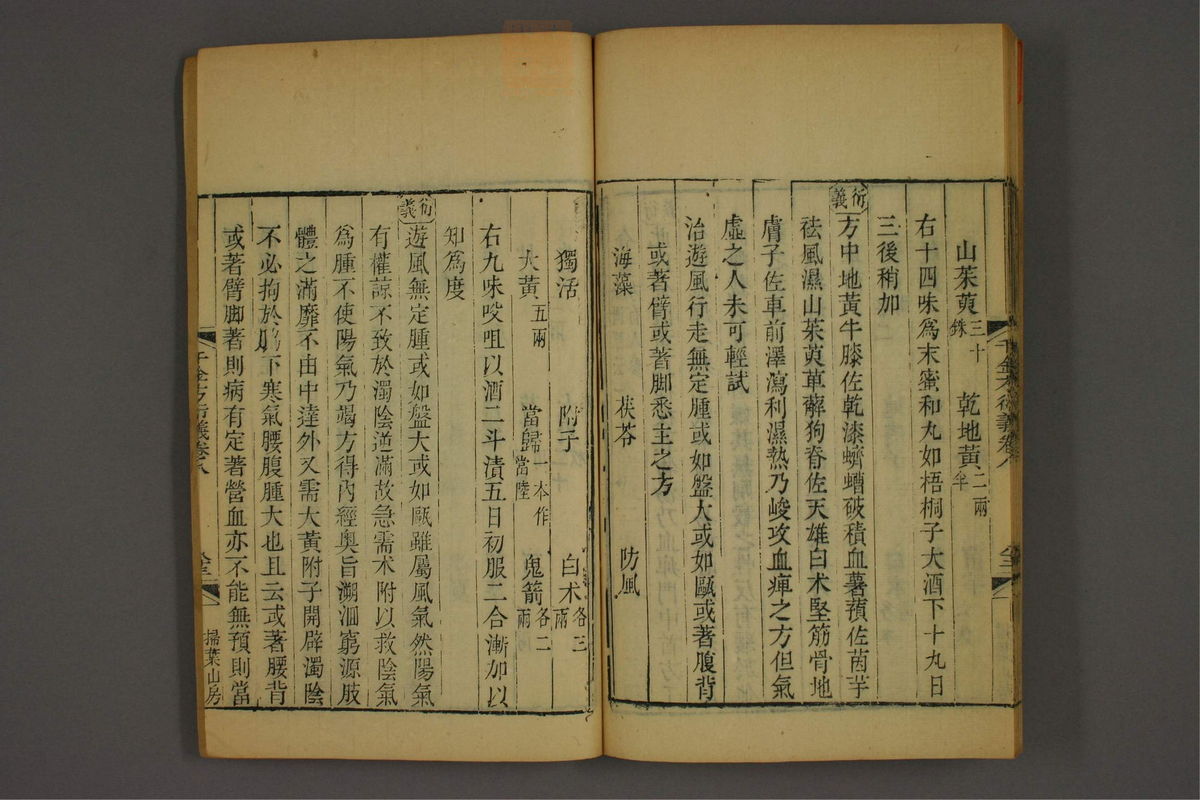 山茱萸三十銖　乾地黃二兩半
右十四味爲末蜜和丸如梧桐子大酒下十丸日
三後稍加
衍義 方中地黃牛膝佐乾漆蠐螬破積血薯蕷佐茵芋
祛風濕山茱萸萆薢狗脊佐天雄白术堅筋骨地
膚子佐車前澤瀉利濕熱乃峻攻血痺之方但氣
虛之人未可輕試
治遊風行走無定腫或如盤大或如甌或著腹背
或著臂或著脚悉主之方
海藻　茯苓　防風
獨活　附子　白术各三兩
大黃五兩　當歸一本作當陸　鬼箭各二兩
右九味㕮咀以酒二斗漬五日初服二合漸加以
知爲度
衍義 遊風無定腫或如盤大或如甌雖屬風氣然陽氣
有權諒不致於濁陰逆滿故急需术附以救陰氣
爲腫不使陽氣乃竭方得內經奧旨溯洄窮源肢
體之滿靡不由中達外又需大黃附子開辟濁陰
不必拘於脇下寒氣腰腹腫大也且云或著腰背
或著臂脚著則病有定著營血亦不能無預則當
千金方衍義卷八
掃葉山房